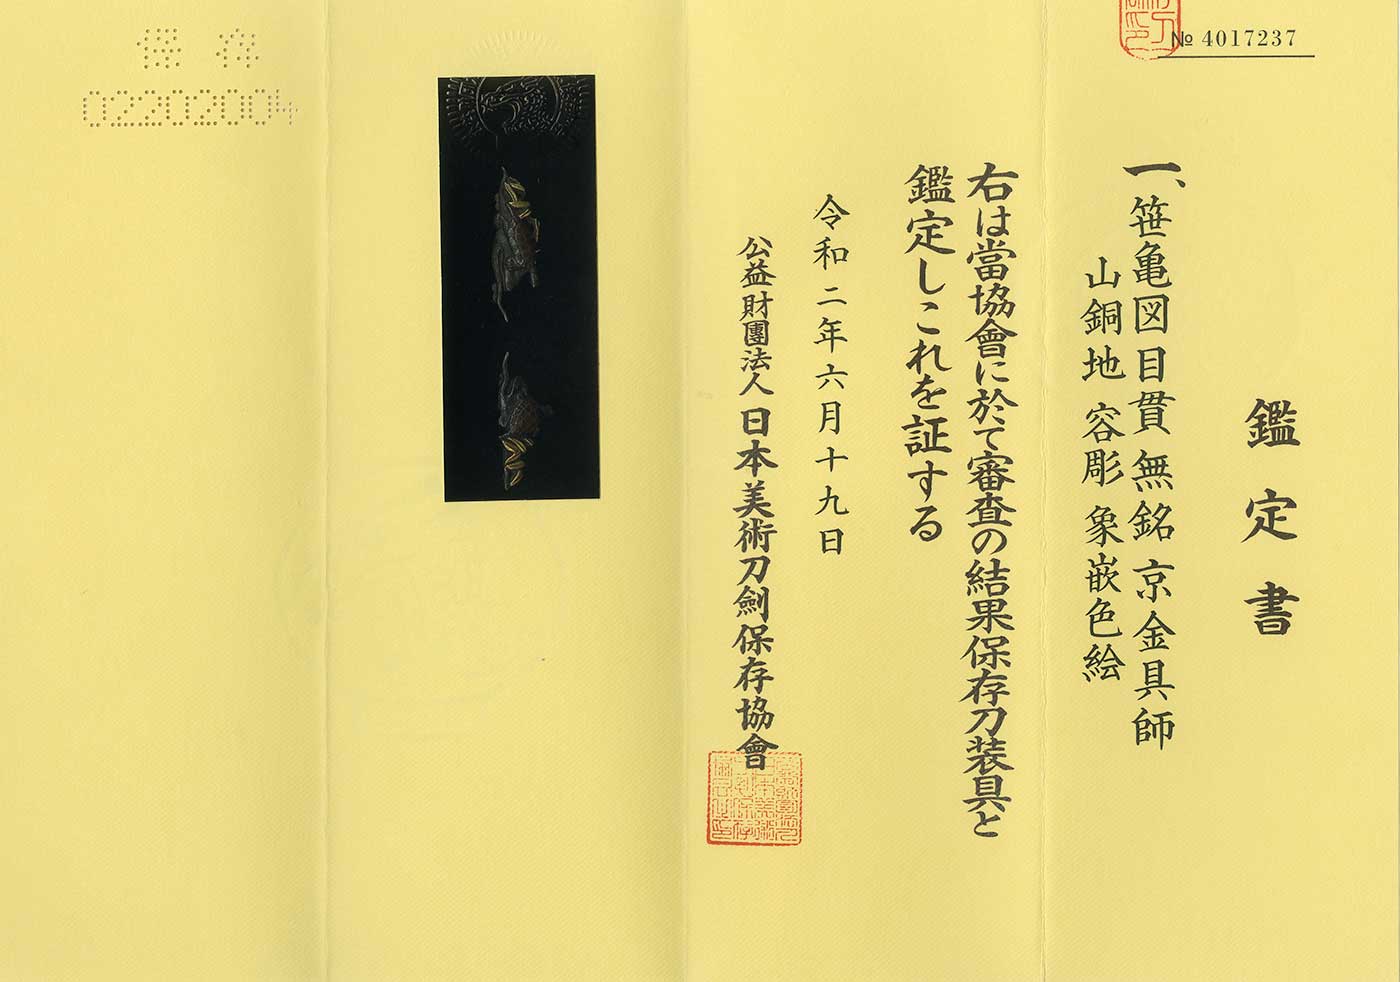 № 4017237
鑑定書
一、笹亀図目貫 無銘 京金具師
山銅地 容彫 象嵌色絵
右は當協會に於て審査の結果保存刀装具と
鑑定しこれを証する
令和二年六月十九日
公益財團法人 日本美術刀劍保存協會
保存
02202004